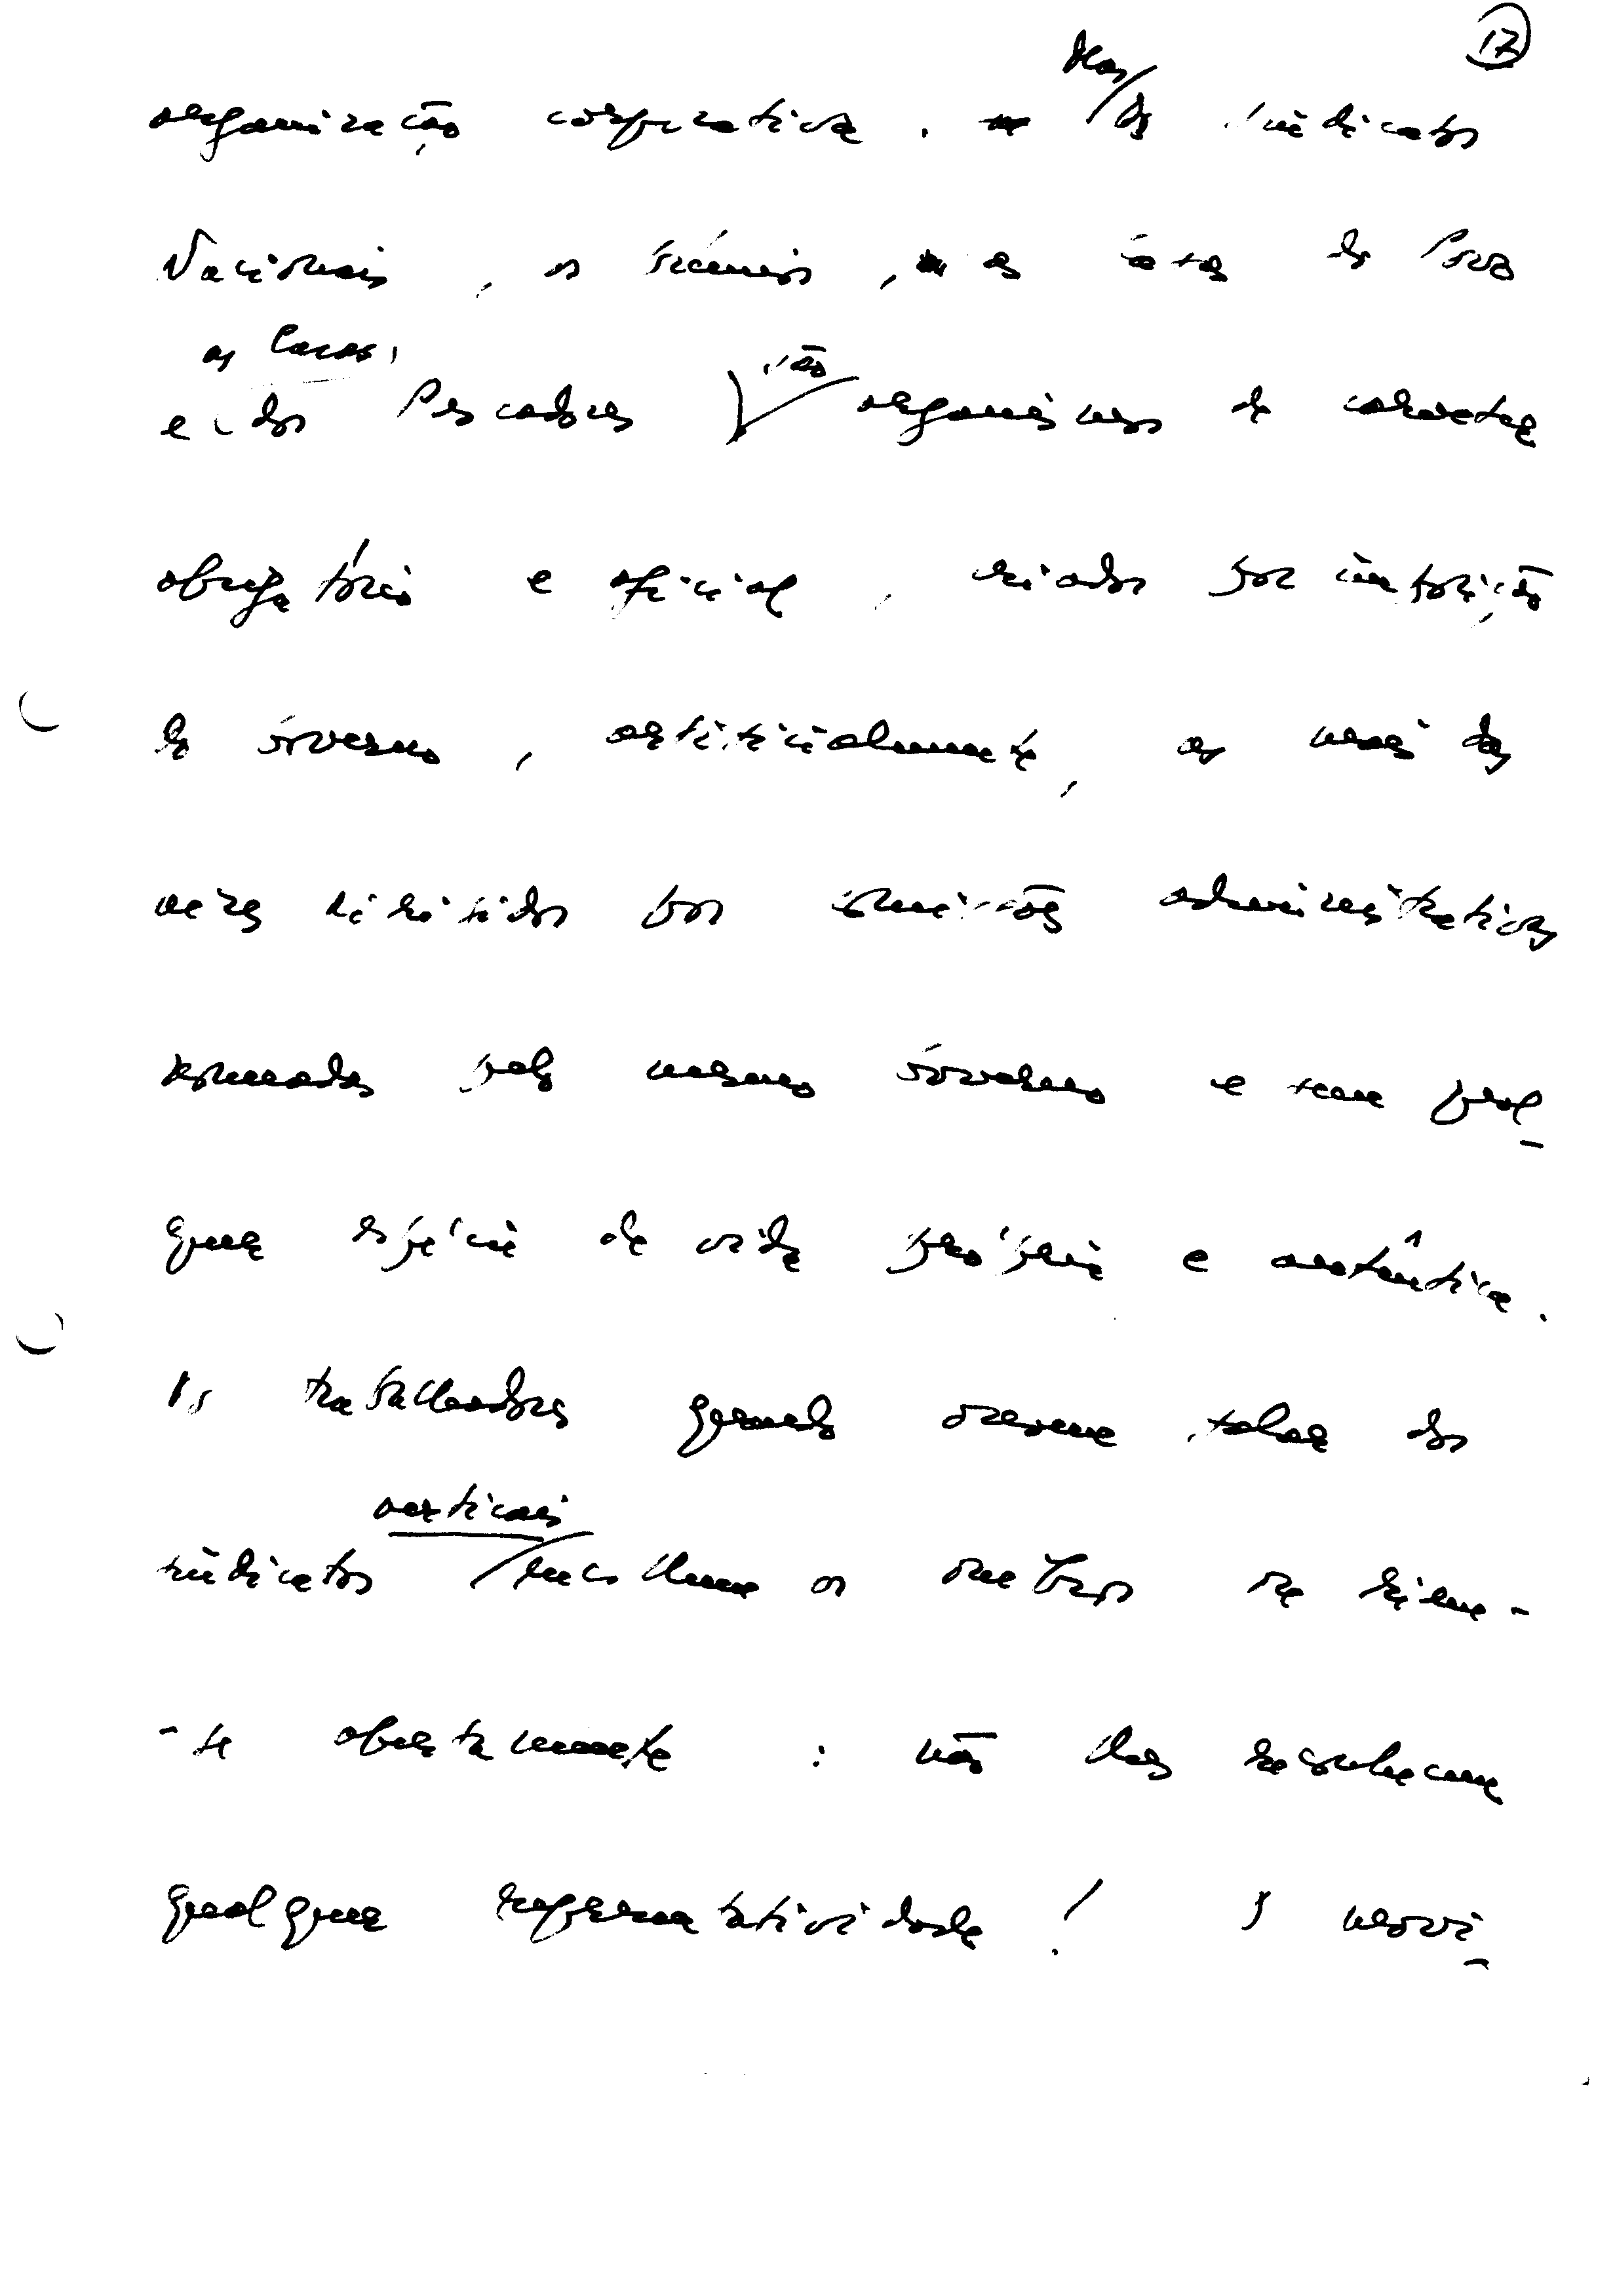 17
Mas
organização corporativa. Os Sindicatos
Nacionais, os Grémios, as Casas do Povo
as Casas, são
e dos Pescadores organismos de carácter
obrigatório e oficial, criados por imposição
do Govêrno, artificialmente, as mais das
vezes dirigidos por comissões administrativas
nomeadas pelo mesmo Govêrno e sem qual_
quer espécie de vida própria e autêntica.
Os trabalhadores quando ouvem falar dos
verticais
sindicatos encolhem os ombros ou riem-
-se abertamente: não lhes reconhecem
qualquer representatividade! O movi_